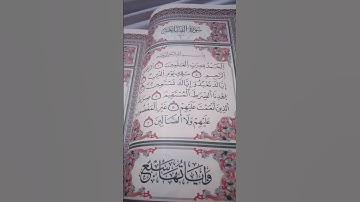 سورة الفاتحة
الحمد لله رب العلمين
الرحيم ملك يوم الدين
إياك نعبد وإياك نستعين
اهدنا الصرط المستقيم صرط
الذين أنعمت عليهم غير المغضوب
عليهم ولا الضالين
وآياتها سبع